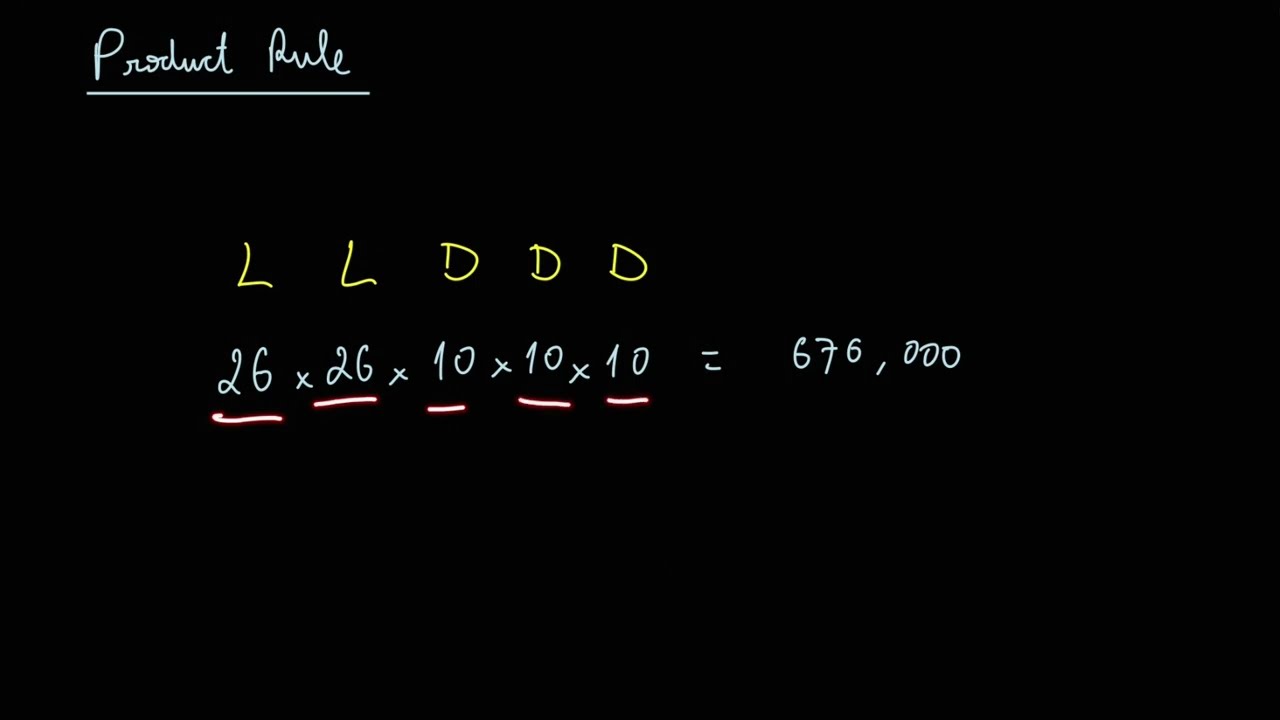 Product Rule
L L D D D
26 × 26 × 10 × 10 × 10 = 676,000